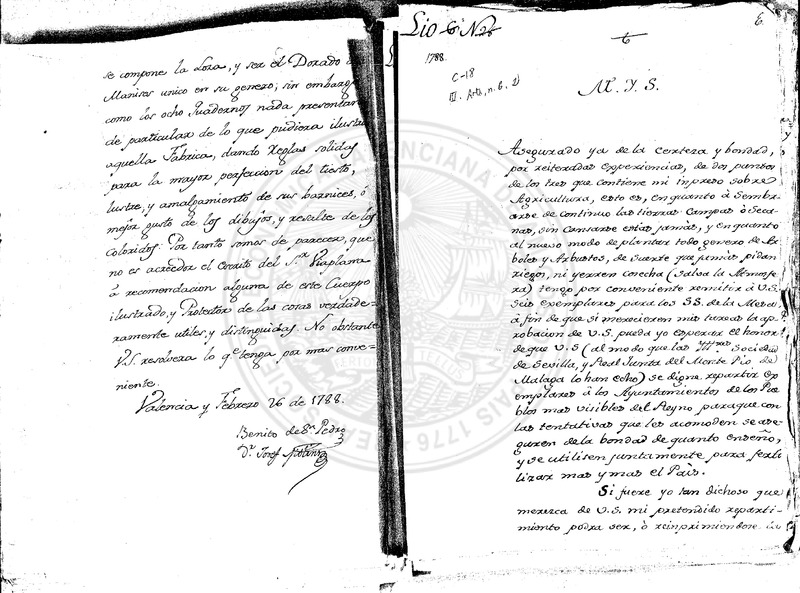 se compone la Loza, y ser el Dorado
Manises unico en su genero; sin embargo
como los ocho Quadernos nada presentan
de particular de lo que pudiera ilustrar
aquella Fabrica, dando Reglas solidas
para la mayor perfeccion del tiesto,
lustre, y amalgamiento de sus barnices, ó
mejor gusto de los dibujos, y resalte de los
Coloridos: Por tanto somos de parecer, que
no es acreedor el escrito del Sr. Viaplana
á recomendacion alguna de este Cuerpo
ilustrado, y Protector de las cosas verdade-
ramente utiles, y distinguidas. No obstante
V.S. resolvera lo qe. tenga por mas conve-
niente.
Valencia y Febrero 26 de 1788.
Benito de Sn. Pedro
Dr. Josef
Lio 6 N
6
1788.
C-18
III. Arts, n. 6. 2)
M. Y. S.
Asegurado ya de la certeza y bondad,
por reiteradas experiencias, de dos puntos
de los tres que contiene mi inpreso sobre
Agricultura, esto es, en quanto à Sembrar
arse de continuo las tierras Campas ò Seca-
nas, sin cansarse estas jamàs, y en quanto
al nuevo modo de plantar todo genero de Ar-
boles y Arbustos, de suerte que jamas pidan
riegos, ni yerren cosecha (salva la Atmosfe-
ra) tengo por conveniente remitir à V.S.
Seis exemplares para los SS. de la Mesa,
à fin de que si merecieren mis tareas la ap-
robacion de V.S. pueda yo esperar el honor
de que V.S (al modo que las Illmas Sociedad
de Sevilla, y Real Junta del Monte Pio de
Malaga lo han echo) se digne repartir Ex-
emplares à los Ayuntamientos de los Pue-
blos mas visibles del Reyno para que con
las tentativas que les acomoden se ase-
guren de la bondad de quanto enseño,
y se utilisen juntamente para ferti-
lizar mas y mas el Païs.
Si fuere yo tan dichoso que
merezca de V.S. mi pretendido reparti-
miento podra ser, ò reinprimiendose la